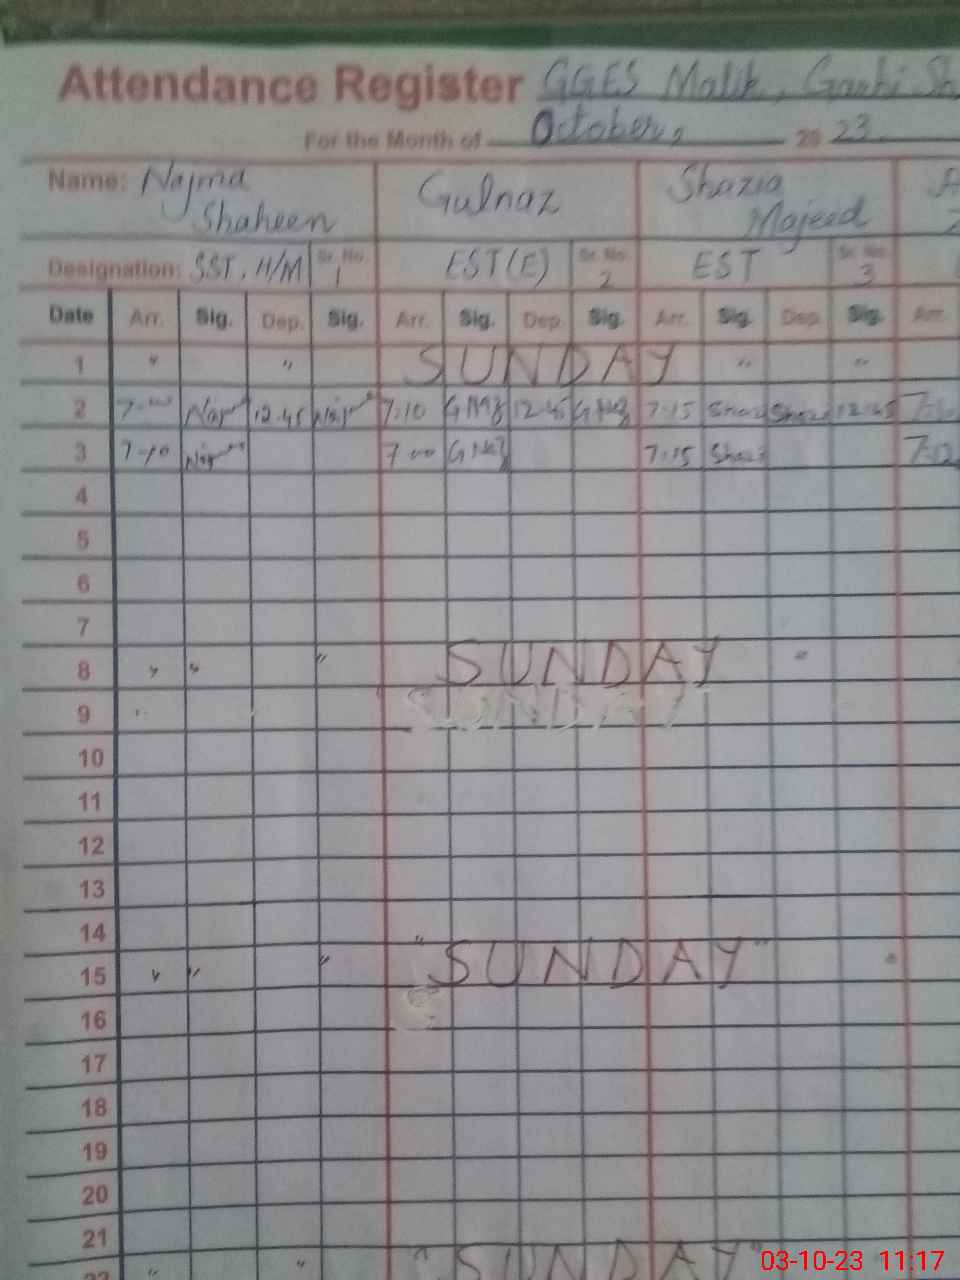 Attendance Register GGES Malik, Garhi Sh
For the Month of October, 2023
Name: Najma Shaheen Gulnaz Shazia Majeed
Designation: SST, H/M Sr. No. 1 EST(E) Sr. No. 2 EST Sr. No. 3
Date Arr. Sig. Dep. Sig. Arr. Sig. Dep. Sig. Arr. Sig. Dep. Sig. Arr.
1 " " SUNDAY " "
2 7-00 Naj 12.45 Naj 7:10 GNZ 12:45 GNZ 7:15 Shazi Shazi 12:45
3 7-10 Naj 7:00 GNZ 7:15 Shazi
4
5
6
7
8 " " " SUNDAY "
9 SUNDAY
10
11
12
13
14
15 " " " "SUNDAY"
16
17
18
19
20
21
22 " " "SUNDAY"
03-10-23 11:17